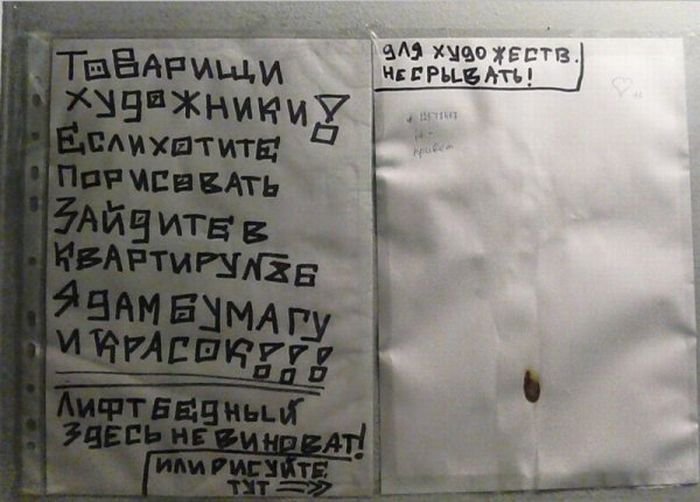 ТОВАРИЩИ
ХУДОЖНИКИ!
ЕСЛИ ХОТИТЕ
ПОРИСОВАТЬ
ЗАЙДИТЕ В
КВАРТИРУ № 6
Я ДАМ БУМАГУ
И КРАСОК!!!
ЛИФТ БЕДНЫЙ
ЗДЕСЬ НЕ ВИНОВАТ!
ИЛИ РИСУЙТЕ
ТУТ =>>
ДЛЯ ХУДОЖЕСТВ.
НЕ СРЫВАТЬ!